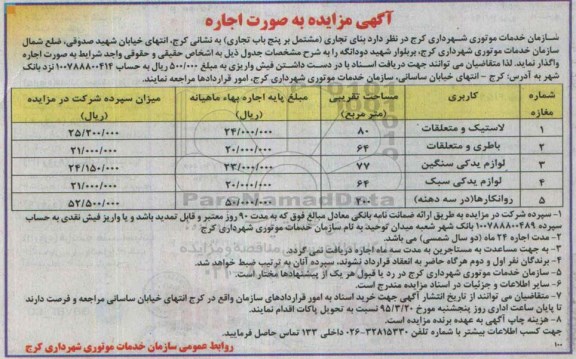 آگهی مزایده به صورت اجاره
سازمان خدمات موتوری شهرداری کرج در نظر دارد بنای تجاری (مشتمل بر پنج باب تجاری) به نشانی کرج، انتهای خیابان شهید صدوقی، ضلع شمال
سازمان خدمات موتوری شهرداری کرج، بریلوار شهید دودانگه را به شرح مشخصات جدول ذیل به اشخاص حقیقی و حقوقی واجد شرایط به صورت اجاره
واگذار نماید. لذا متقاضیان می توانند جهت دریافت اسناد با در دست داشتن فیش واریزی به مبلغ ۵۰۰/۰۰۰ ریال به حساب ۱۰۰۷۸۸۸۰۰۴۱۴ نزد بانک
شهر به آدرس: کرج - انتهای خیابان ساسانی، سازمان خدمات موتوری شهرداری کرج، امور قراردادها مراجعه نمایند.
شماره مغازه کاربری مساحت تقریبی (متر مربع) مبلغ پایه اجاره بهاء ماهیانه (ریال) میزان سپرده شرکت در مزایده (ریال)
۱ لاستیک و متعلقات ۸۰ ۲۴/۰۰۰/۰۰۰ ۲۵/۲۰۰/۰۰۰
۲ باطری و متعلقات ۶۴ ۲۰/۰۰۰/۰۰۰ ۲۱/۰۰۰/۰۰۰
۳ لوازم یدکی سنگین ۷۷ ۲۳/۰۰۰/۰۰۰ ۲۴/۱۵۰/۰۰۰
۴ لوازم یدکی سبک ۶۴ ۲۰/۰۰۰/۰۰۰ ۲۱/۰۰۰/۰۰۰
۵ روانکارها(در سه دهنه) ۲۰۰ ۵۰/۰۰۰/۰۰۰ ۵۲/۵۰۰/۰۰۰
۱- سپرده شرکت در مزایده به طریق ارائه ضمانت نامه بانکی معادل مبالغ فوق که به مدت ۹۰ روز معتبر و قابل تمدید باشد و یا واریز فیش نقدی به حساب
سپرده ۱۰۰۷۸۸۸۰۰۴۸۹ بانک شهر شعبه میدان توحید به نام سازمان خدمات موتوری شهرداری کرج
۲- مدت اجاره ۲۴ ماه (دو سال شمسی) می باشد.
۳- به جهت مساعدت به مستاجرین به مدت سه ماه اجاره دریافت نمی گردد.
۴- برندگان نفر اول و دوم هرگاه حاضر به انعقاد قرارداد نشوند، سپرده آنان به ترتیب ضبط خواهد شد.
۵- سازمان خدمات موتوری شهرداری کرج در رد یا قبول هر یک از پیشنهادها مختار است.
۶- سایر اطلاعات و جزئیات در اسناد مزایده مندرج است.
۷- متقاضیان می توانند از تاریخ انتشار آگهی جهت خرید اسناد به امور قراردادهای سازمان واقع در کرج انتهای خیابان ساسانی مراجعه و فرصت دارند
تا پایان ساعت اداری روز پنجشنبه مورخ ۹۵/۳/۲۰ نسبت به تحویل پاکات اقدام نمایند.
۸- هزینه چاپ آگهی به عهده برنده مزایده است.
جهت کسب اطلاعات بیشتر با شماره تلفن ۳۲۸۱۵۳۳۰-۰۲۶ داخلی ۱۳۳ تماس حاصل فرمایید.
روابط عمومی سازمان خدمات موتوری شهرداری کرج
۱۰۰
ParsNamadData